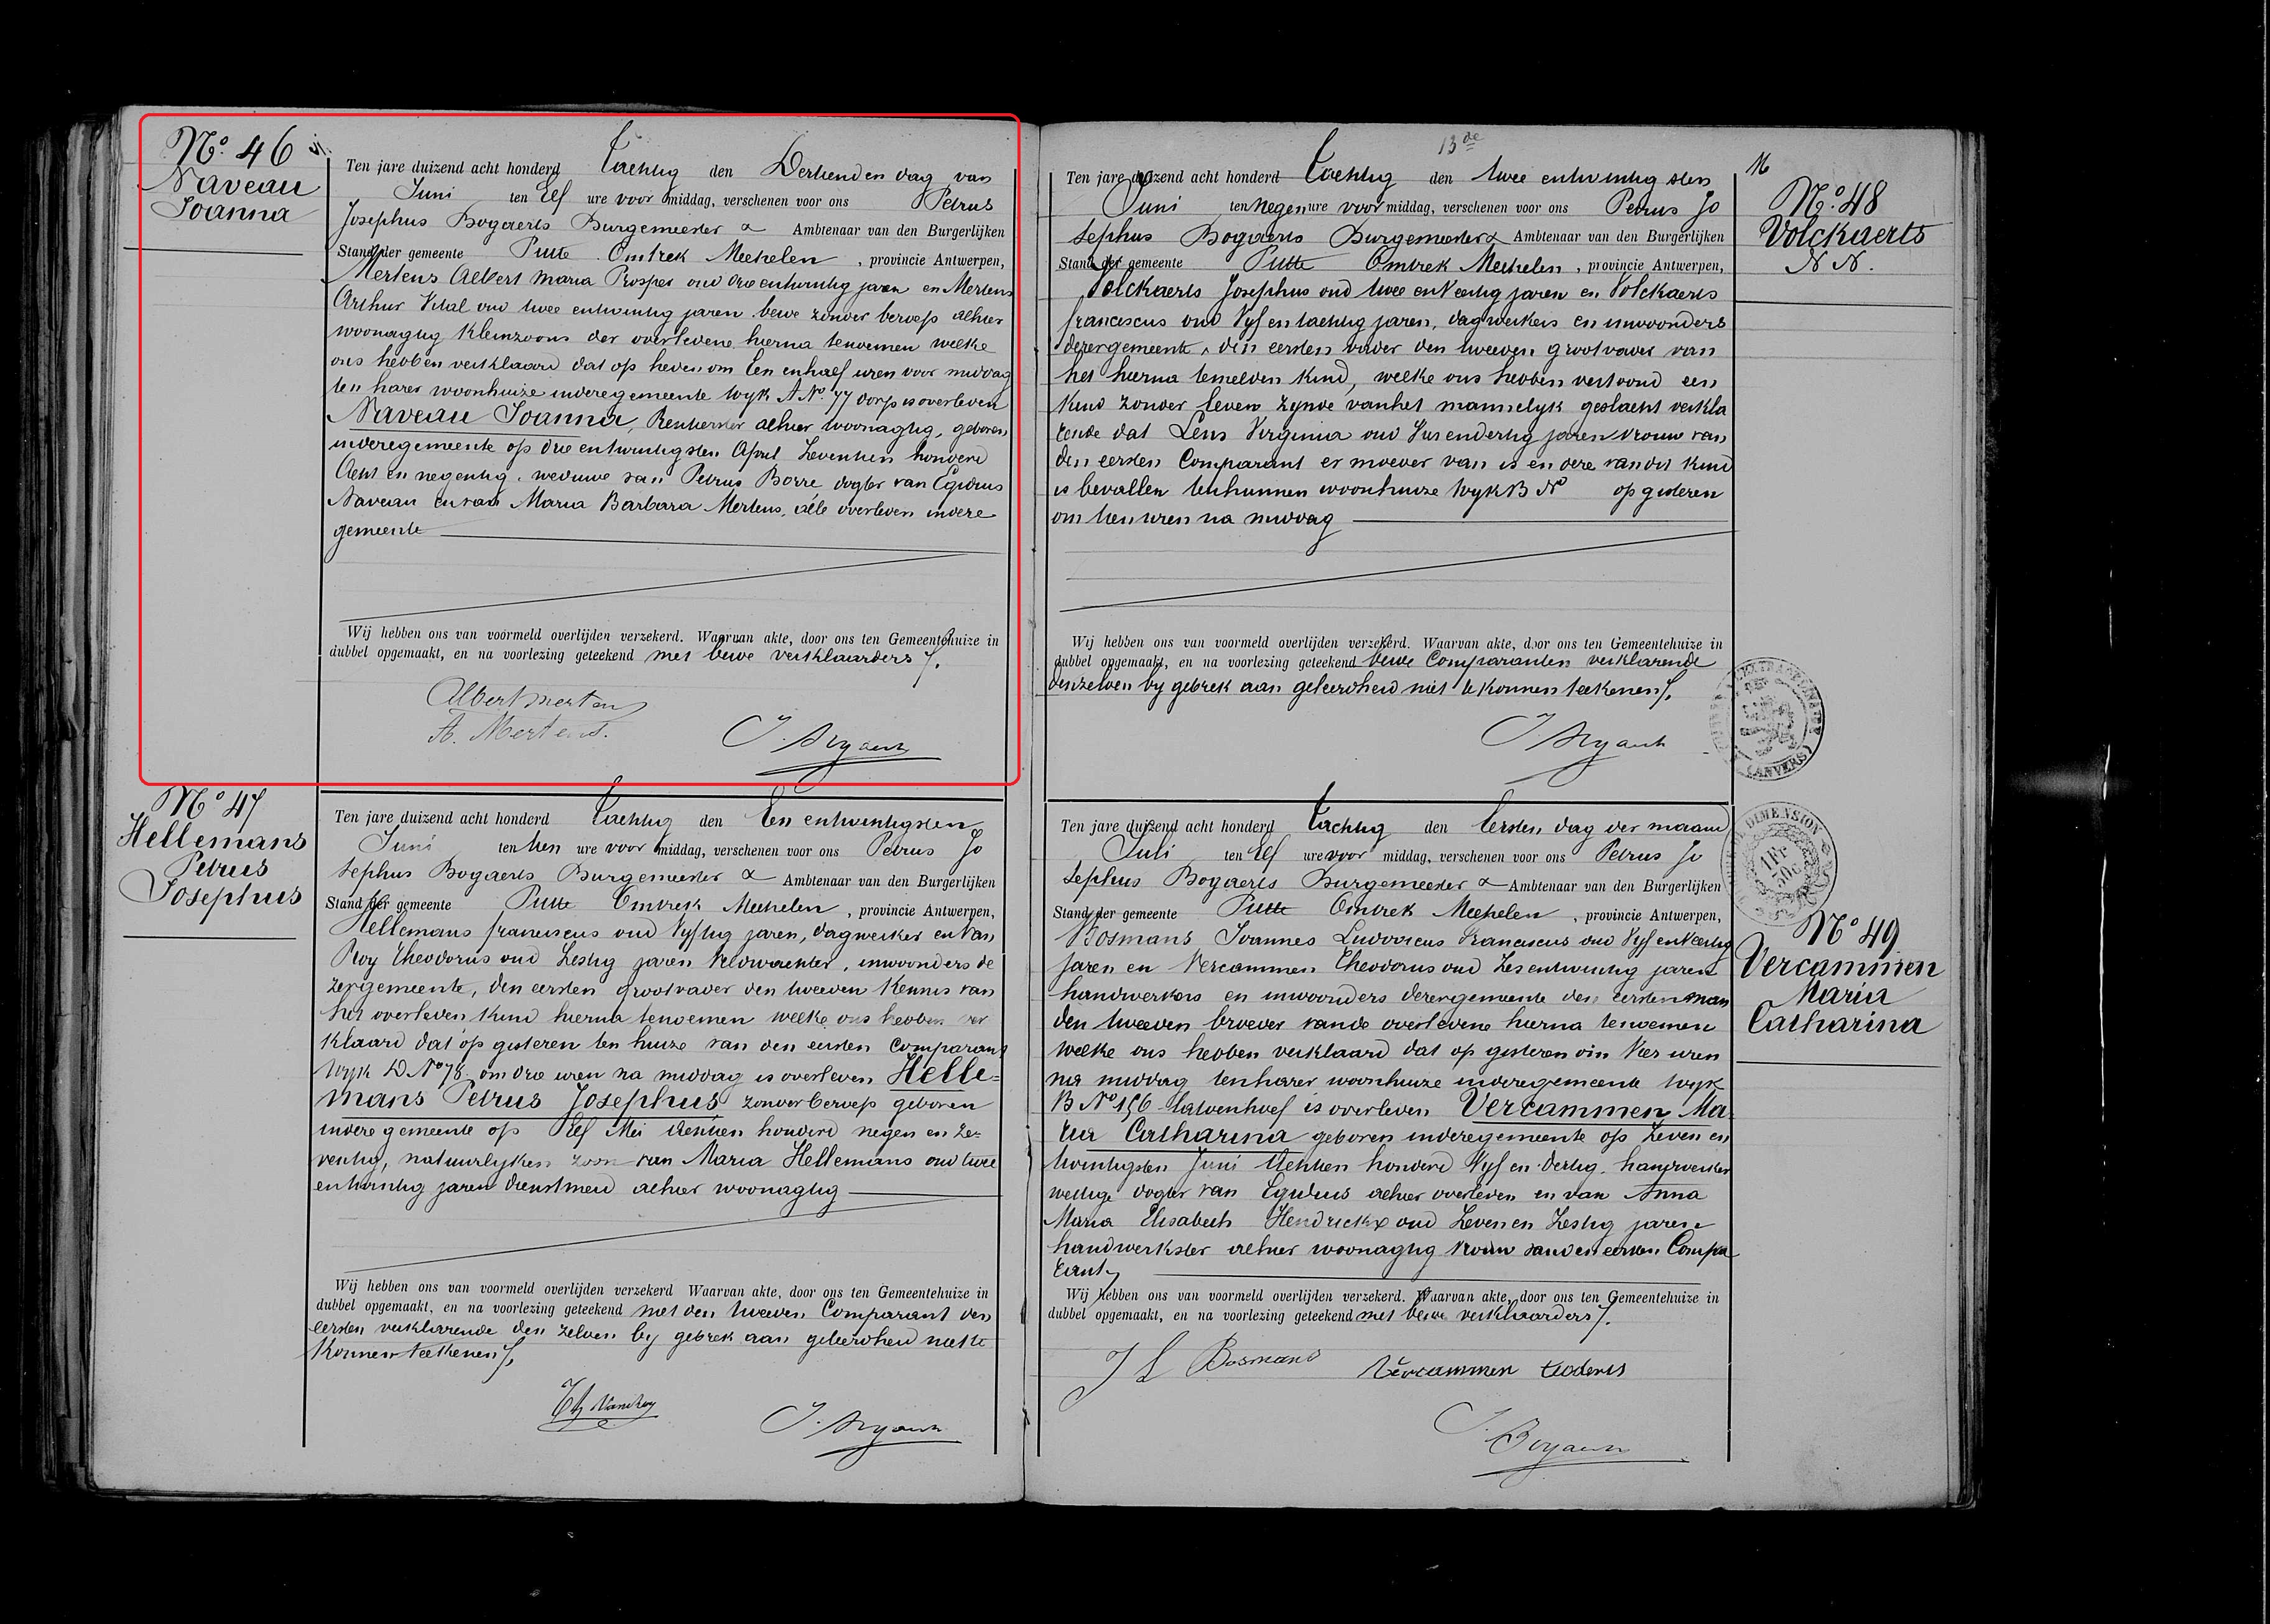 Nº 46
Naveau
Joanna
Ten jare duizend acht honderd Tachtig den Dertienden dag van
Juni ten Elf ure voor middag, verschenen voor ons Petrus
Josephus Bogaerts Burgemeester & Ambtenaar van den Burgerlijken
Stand der gemeente Putte Omtrek Mechelen, provincie Antwerpen,
Mertens Albert Maria Prosper oud drie entwintig jaren en Mertens
Arthur Vital oud twee entwintig jaren beide zonder beroep alhier
woonagtig Kleinzoons der overledene hierna tenoemen welke
ons hebben verklaard dat op heden om Een enhalf uren voor middag
ten harer woonhuize inderegemeente Wyk A Nº 77 dorp is overleden
Naveau Joanna, Rentenster alhier woonagtig, geboren
inderegemeente op drie entwintigsten April Zeventien honderd
Acht en negentig, weduwe van Petrus Borre dogter van Egidius
Naveau en van Maria Barbara Mertens, alle overleden indere
gemeente
Wij hebben ons van voormeld overlijden verzekerd. Waarvan akte, door ons ten Gemeentehuize in
dubbel opgemaakt, en na voorlezing geteekend met beide verklaarders /.
Albert Mertens
A. Mertens.
J. Bogaerts
Nº 47
Hellemans
Petrus
Josephus
Ten jare duizend acht honderd Tachtig den Een entwintigsten
Juni ten tien ure voor middag, verschenen voor ons Petrus Jo
sephus Bogaerts Burgemeester & Ambtenaar van den Burgerlijken
Stand der gemeente Putte Omtrek Mechelen, provincie Antwerpen,
Hellemans franciscus oud Vyftig jaren, dagwerker en Van
Roy Theodorus oud Zestig jaren Veldwachter, inwoonders de
zergemeente, den eersten grootvader den tweeden Kennis van
het overleden Kind hierna tenoemen welke ons hebben ver
klaard dat op gisteren ten huize van den eersten comparant
Wyk D Nº 78 om drie uren na middag is overleden Helle=
mans Petrus Josephus zonder beroep geboren
indere gemeente op Elf Mei Achtien honderd negen en ze=
ventig, natuurlyken zoon van Maria Hellemans oud twee
entwintig jaren dienstmeid alhier woonagtig
Wij hebben ons van voormeld overlijden verzekerd Waarvan akte, door ons ten Gemeentehuize in
dubbel opgemaakt, en na voorlezing geteekend met den tweeden Comparant den
eersten verklarende den zelven by gebrek aan geleerdheid niet te
Konnen teekenen /.
Th Van Roy
J. Bogaerts
13de
Ten jare duizend acht honderd Tachtig den twee entwintig sten
Juni ten negen ure voor middag, verschenen voor ons Petrus Jo
sephus Bogaerts Burgemeester & Ambtenaar van den Burgerlijken
Stand der gemeente Putte Omtrek Mechelen, provincie Antwerpen,
Volckaerts Josephus oud twee enVeertig jaren en Volckaerts
franciscus oud Vyf en tachtig jaren, dagwerkers en inwoonders
dezergemeente, den eersten vader den tweeden grootvader van
het hierna temelden Kind, welke ons hebben vertoond een
Kind zonder leven zynde vanhet mannelyk geslacht verkla
rende dat Lens Virginia oud Zes endertig jaren vrouw van
den eersten Comparant er moeder van is en dere van dit kind
is bevallen tenhunnen woonhuize Wyk B Nº op gisteren
om tien uren na middag
Wij hebben ons van voormeld overlijden verzekerd. Waarvan akte, door ons ten Gemeentehuize in
dubbel opgemaakt, en na voorlezing geteekend beide Comparanten verklarende
denzelven by gebrek aan geleerdheid niet te Konnen teekenen /.
J Bogaerts
Nº 48
Volckaerts
N N.
(ANVERS)
DIMENSION
1 Fr
50c
Ten jare duizend acht honderd Tachtig den Eersten dag der maand
Juli ten Elf ure voor middag, verschenen voor ons Petrus Jo
sephus Bogaerts Burgemeester & Ambtenaar van den Burgerlijken
Stand der gemeente Putte Omtrek Mechelen, provincie Antwerpen,
Bosmans Joannes Ludovicus Franciscus oud Vyf enVeertig
jaren en Vercammen Theodorus oud Zes entwintig jaren
handwerkers en inwoonders dezergemeente den eersten man
den tweeden broeder vande overledene hierna tenoemen
welke ons hebben verklaard dat op gisteren om Vier uren
na middag tenharer woonhuize inderegemeente Wyk
B Nº 156 is overleden Vercammen Ma=
ria Catharina geboren inderegemeente op Zeven en
twintigsten Juni Achtien honderd Vyf en dertig, handwerkster
wettige dogter van Egidius alhier overleden en van Anna
Maria Elisabeth Hendrickx oud Zeven en Zestig jaren
handwerkster alhier woonagtig Vrouw vanden eersten Compa
rant
Wij hebben ons van voormeld overlijden verzekerd. Waarvan akte, door ons ten Gemeentehuize in
dubbel opgemaakt, en na voorlezing geteekend met beide verklaarders /.
J L Bosmans Vercammen teoderus
J. Bogaerts
Nº 49
Vercammen
Maria
Catharina